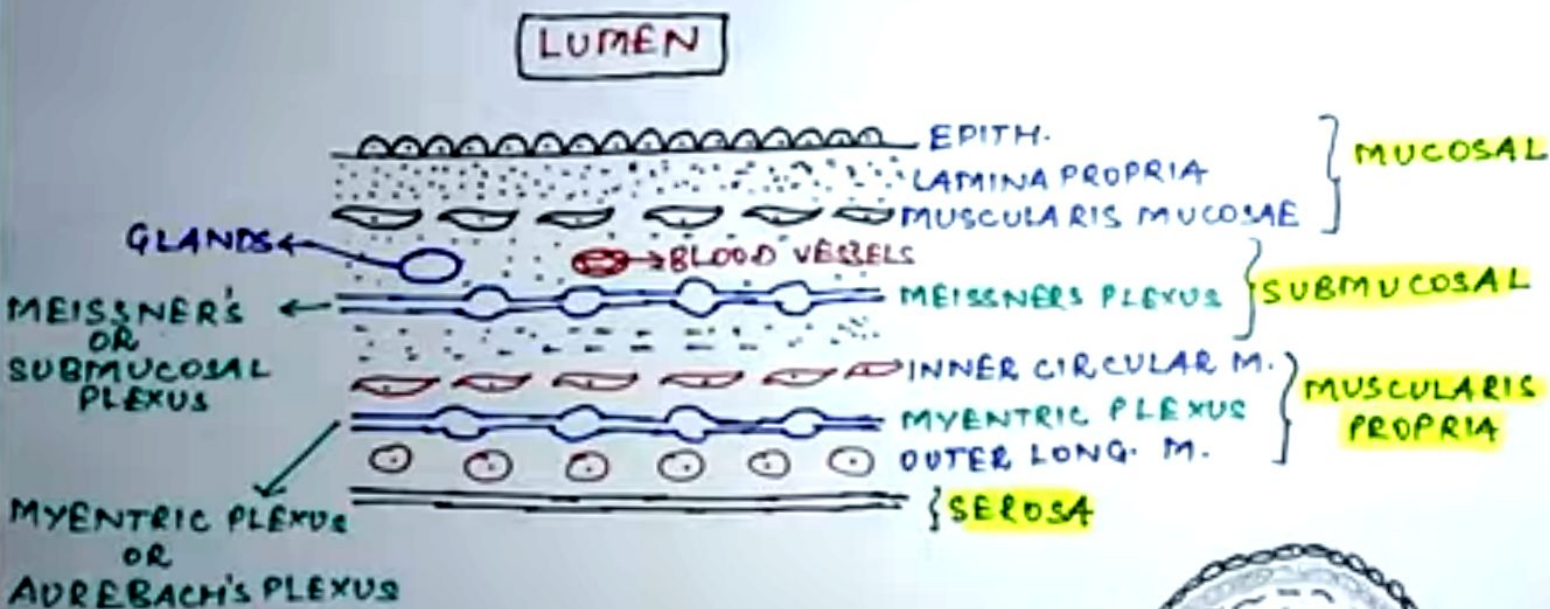 LUMEN
EPITH.
LAMINA PROPRIA
MUSCULARIS MUCOSAE
MUCOSAL
GLANDS
BLOOD VESSELS
MEISSNERS PLEXUS
SUBMUCOSAL
MEISSNER'S
OR
SUBMUCOSAL
PLEXUS
INNER CIRCULAR M.
MYENTRIC PLEXUS
OUTER LONG. M.
MUSCULARIS
PROPRIA
SEROSA
MYENTRIC PLEXUS
OR
AUREBACH'S PLEXUS